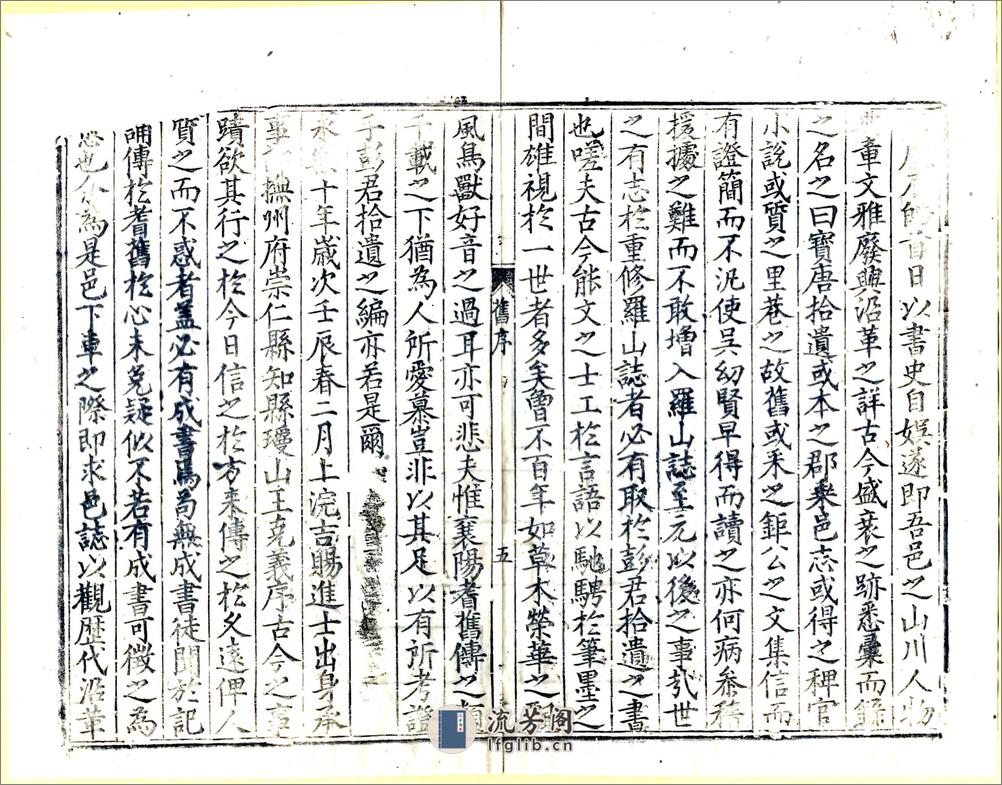 日以書史自娛遂即吾邑之山川人物
章文雅廢興沿革之詳古今盛衰之跡悉彙而錄
之名之曰寶唐拾遺或本之郡乘邑志或得之稗官
小說或質之里巷之故舊或釆之鉅公之文集信而
有證簡而不汎使吳幼賢早得而讀之亦何病叅稽
援據之難而不敢增入羅山誌至元以後之事哉世
之有志於重修羅山誌者必有取於彭君拾遺之書
也嗟夫古今能文之士工於言語以馳騁於筆墨之
間雄視於一世者多矣曾不百年如草木榮華之飄
風鳥獸好音之過耳亦可悲夫惟襄陽耆舊傳之類
千載之下猶為人所愛慕豈非以其足以有所考證
乎彭君拾遺之編亦若是爾
十年歲次壬辰春二月上浣吉賜進士出身承
事 撫州府崇仁縣知縣瓊山王克義序古今之事
蹟欲其行之於今日信之於方來傳之於久遠俾人
質之而不惑者盖必有成書焉苟無成書徒聞於記
誦傳於耆舊於心未免疑似不若有成書可徵之為
愈也 為是邑下車之際即求邑誌以觀歷代沿革
舊序
五
流芳閣
lfglib.cn